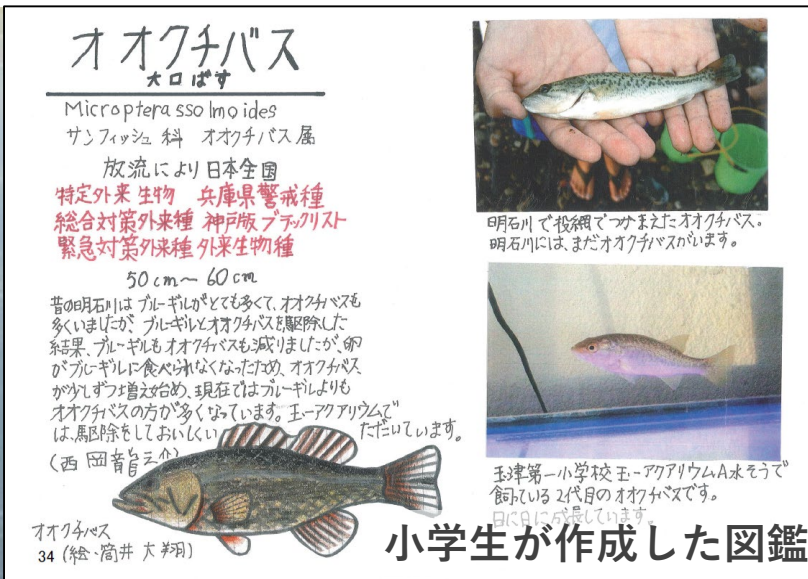 オオクチバス
大口ばす
Micropterassolmoides
サンフィッシュ科 オオクチバス属
放流により日本全国
特定外来生物 兵庫県警戒種
総合対策外来種 神戸版ブラックリスト
緊急対策外来種 外来生物種
50cm～60cm
昔の明石川はブルーギルがとても多くて、オオクチバスも
多くいましたが、ブルーギルとオオクチバスを駆除した
結果、ブルーギルもオオクチバスも減りましたが、卵
がブルーギルに食べられなくなったため、オオクチバス
が少しずつ増え始め、現在ではブルーギルよりも
オオクチバスの方が多くなっています。玉一アクアリウムで
は、駆除をしておいしい ただいています。
(西岡龍
オオクチバス
34 (絵・筒井 大翔)
明石川で投網でつかまえたオオクチバス。
明石川には、まだオオクチバスがいます。
玉津第一小学校玉一アクアリウムA水そうで
飼っている2代目のオオクチバスです。
日に日に成長しています。
小学生が作成した図鑑